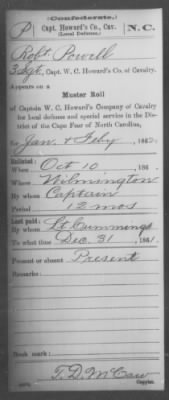 (Confederate.)
P Capt. Howard's Co., Cav. N.C.
(Local Defense.)
Robt. Powell
3 Sgt, Capt. W. C. Howard's Co. of Cavalry.
Appears on a
Muster Roll
of Captain W. C. Howard's Company of Cavalry
for local defense and special service in the Dis-
trict of the Cape Fear of North Carolina,
for Jan. & Feby, 1862.
Enlisted:
When Oct 10, 186 .
Where Wilmington
By whom Captain
Period 12 mos
Last paid:
By whom Lt. Cummings
To what time Dec. 31, 1861.
Present or absent Present
Remarks:
Book mark:
T. D. McCaw
Copyist.